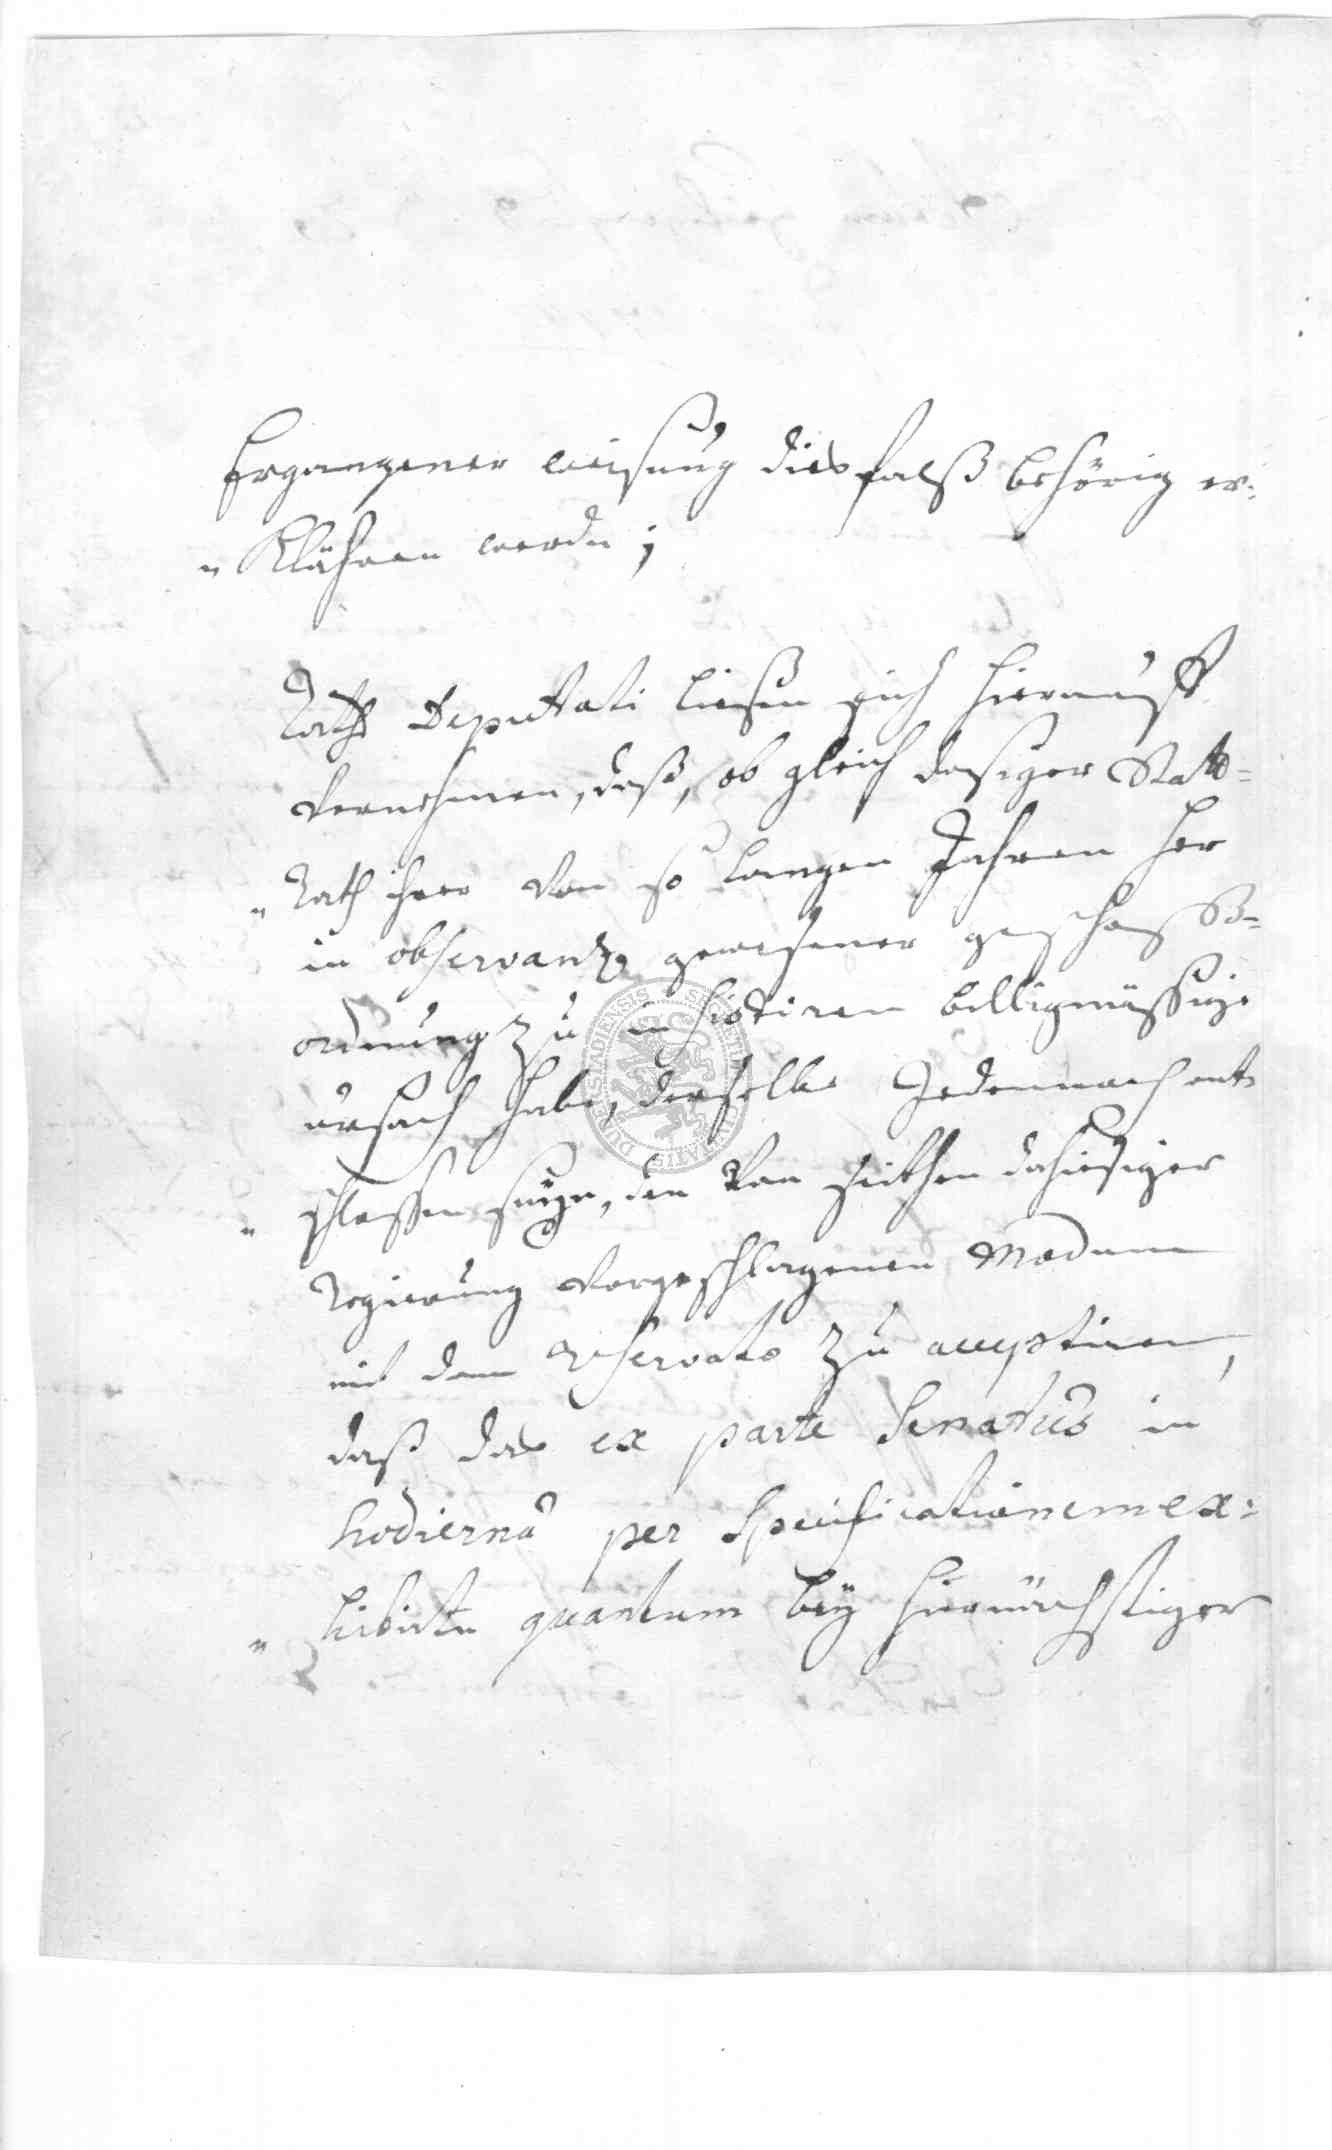 Ergangener weisung diesfalß behörig er-
" Klähren werde;
Raths Deputati liesen sich hierauff
vernehmen, daß, ob gleich dasiger Statt-
" Rath ihrer von so langen Jahren her
in observantz gewesener geschoß-
ordnung zu insistiren billigmässige
ursach habe, derselbe Jedennach ent-
" schlossen seye, den von seithen dahiesiger
Regierung vorgeschlagenen Modum
mit dem reservato zu acceptiren,
daß das ex parte Senatus in
hodierna per Specificationem ex-
" hibirte quantum bey hiernächstiger
SOCIETATIS CIVITATIS DURSTADIENSIS